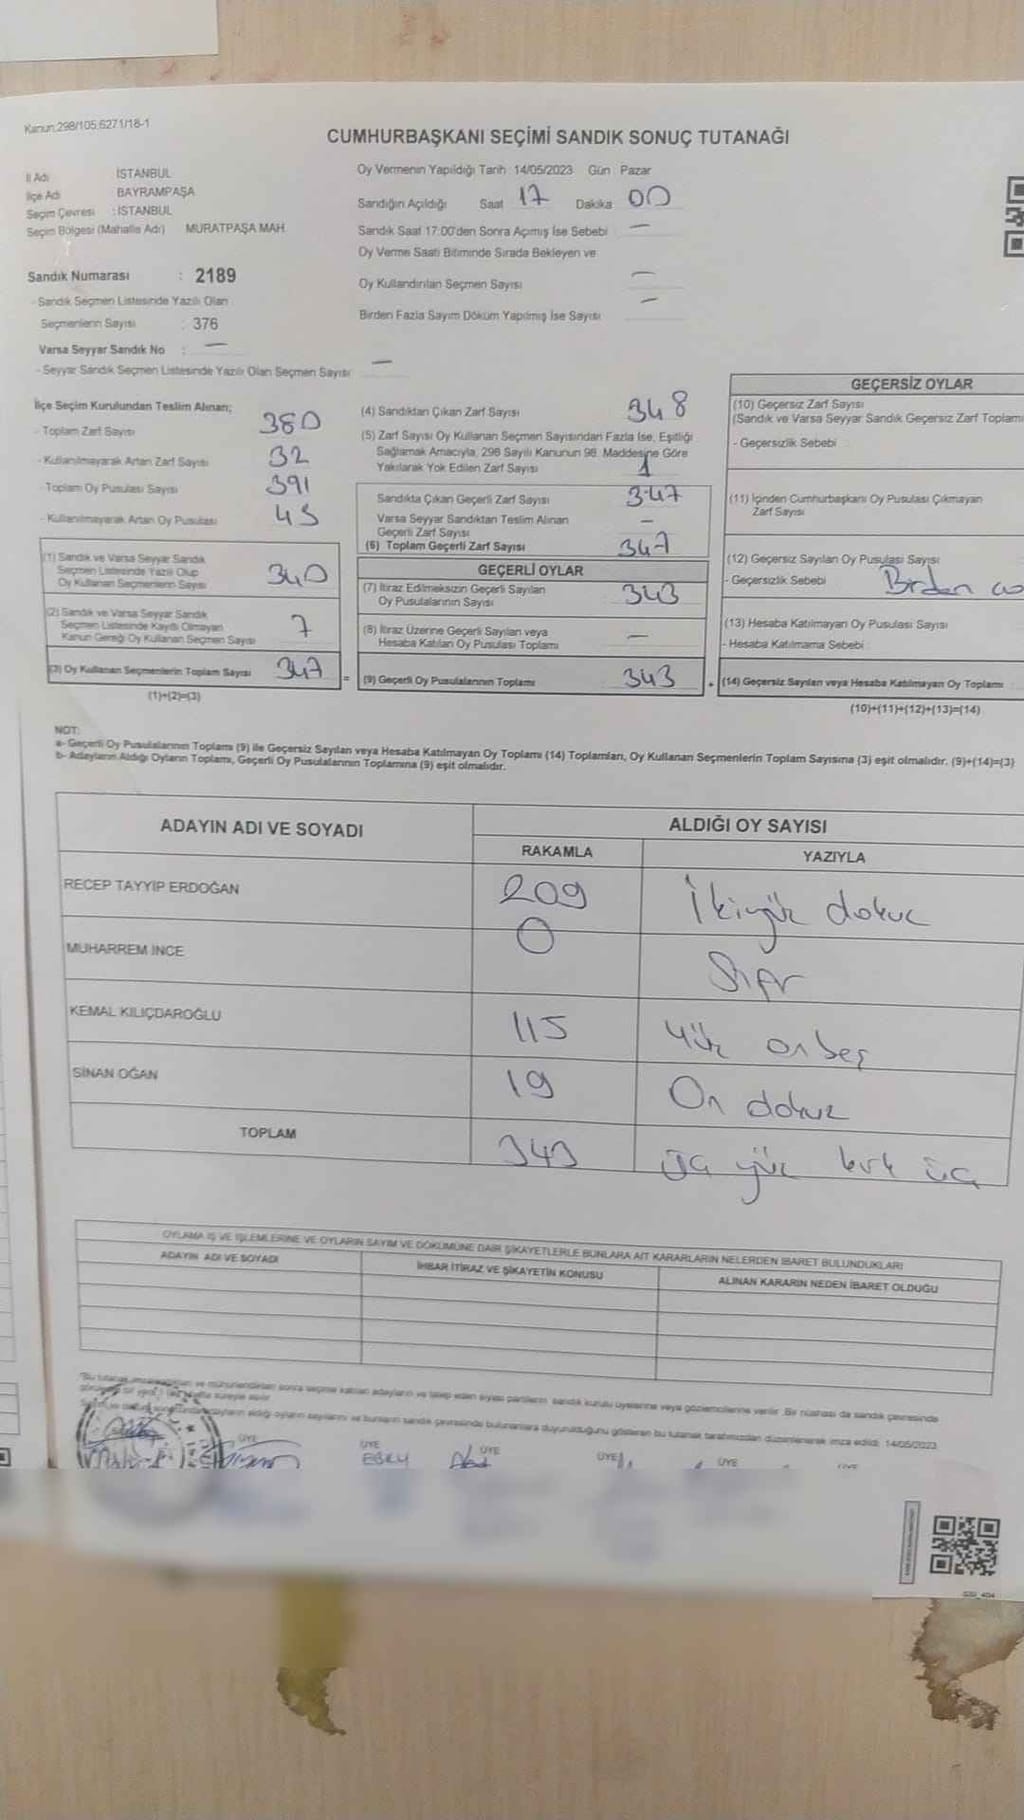 Kanun:298/105;6271/18-1
CUMHURBAŞKANI SEÇİMİ SANDIK SONUÇ TUTANAĞI
İl Adı İSTANBUL
İlçe Adı BAYRAMPAŞA
Seçim Çevresi : İSTANBUL
Seçim Bölgesi (Mahalle Adı) MURATPAŞA MAH.
Oy Vermenin Yapıldığı Tarih 14/05/2023 Gün Pazar
Sandığın Açıldığı Saat 17 Dakika 00
Sandık Saat 17:00'den Sonra Açımış İse Sebebi —
Oy Verme Saati Bitiminde Sırada Bekleyen ve
Oy Kullandırılan Seçmen Sayısı —
Birden Fazla Sayım Döküm Yapılmış İse Sayısı —
Sandık Numarası : 2189
- Sandık Seçmen Listesinde Yazılı Olan
Seçmenlerin Sayısı : 376
Varsa Seyyar Sandık No : —
- Seyyar Sandık Seçmen Listesinde Yazılı Olan Seçmen Sayısı —
İlçe Seçim Kurulundan Teslim Alınan;
- Toplam Zarf Sayısı 380
- Kullanılmayarak Artan Zarf Sayısı 32
- Toplam Oy Pusulası Sayısı 391
- Kullanılmayarak Artan Oy Pusulası 45
(1) Sandık ve Varsa Seyyar Sandık
Seçmen Listesinde Yazılı Olup
Oy Kullanan Seçmenlerin Sayısı 340
(2) Sandık ve Varsa Seyyar Sandık
Seçmen Listesinde Kayıtlı Olmayan
Kanun Gereği Oy Kullanan Seçmen Sayısı 7
(3) Oy Kullanan Seçmenlerin Toplam Sayısı 347
(1)+(2)=(3)
(4) Sandıktan Çıkan Zarf Sayısı 348
(5) Zarf Sayısı Oy Kullanan Seçmen Sayısından Fazla İse, Eşitliği
Sağlamak Amacıyla, 298 Sayılı Kanunun 98. Maddesine Göre
Yakılarak Yok Edilen Zarf Sayısı 1
Sandıkta Çıkan Geçerli Zarf Sayısı 347
Varsa Seyyar Sandıktan Teslim Alınan
Geçerli Zarf Sayısı —
(6) Toplam Geçerli Zarf Sayısı 347
GEÇERLİ OYLAR
(7) İtiraz Edilmeksizin Geçerli Sayılan
Oy Pusulalarının Sayısı 343
(8) İtiraz Üzerine Geçerli Sayılan veya
Hesaba Katılan Oy Pusulası Toplamı —
= (9) Geçerli Oy Pusulalarının Toplamı 343
GEÇERSİZ OYLAR
(10) Geçersiz Zarf Sayısı
(Sandık ve Varsa Seyyar Sandık Geçersiz Zarf Toplamı
- Geçersizlik Sebebi
(11) İçinden Cumhurbaşkanı Oy Pusulası Çıkmayan
Zarf Sayısı
(12) Geçersiz Sayılan Oy Pusulası Sayısı
- Geçersizlik Sebebi Birden
(13) Hesaba Katılmayan Oy Pusulası Sayısı
- Hesaba Katılmama Sebebi
+ (14) Geçersiz Sayılan veya Hesaba Katılmayan Oy Toplamı
(10)+(11)+(12)+(13)=(14)
NOT:
a- Geçerli Oy Pusulalarının Toplamı (9) ile Geçersiz Sayılan veya Hesaba Katılmayan Oy Toplamı (14) Toplamları, Oy Kullanan Seçmenlerin Toplam Sayısına (3) eşit olmalıdır. (9)+(14)=(3)
b- Adayların Aldığı Oyların Toplamı, Geçerli Oy Pusulalarının Toplamına (9) eşit olmalıdır.
ADAYIN ADI VE SOYADI
ALDIĞI OY SAYISI
RAKAMLA YAZIYLA
RECEP TAYYİP ERDOĞAN 209 İkiyüz dokuz
MUHARREM İNCE 0 Sıfır
KEMAL KILIÇDAROĞLU 115 Yüz onbeş
SİNAN OĞAN 19 On dokuz
TOPLAM 343 üç yüz kırk üç
OYLAMA İŞ VE İŞLEMLERİNE VE OYLARIN SAYIM VE DÖKÜMÜNE DAİR ŞİKAYETLERLE BUNLARA AİT KARARLARIN NELERDEN İBARET BULUNDUKLARI
ADAYIN ADI VE SOYADI İHBAR İTİRAZ VE ŞİKAYETİN KONUSU ALINAN KARARIN NEDEN İBARET OLDUĞU
ÜYE ÜYE ÜYE ÜYE ÜYE ÜYE
EBRU